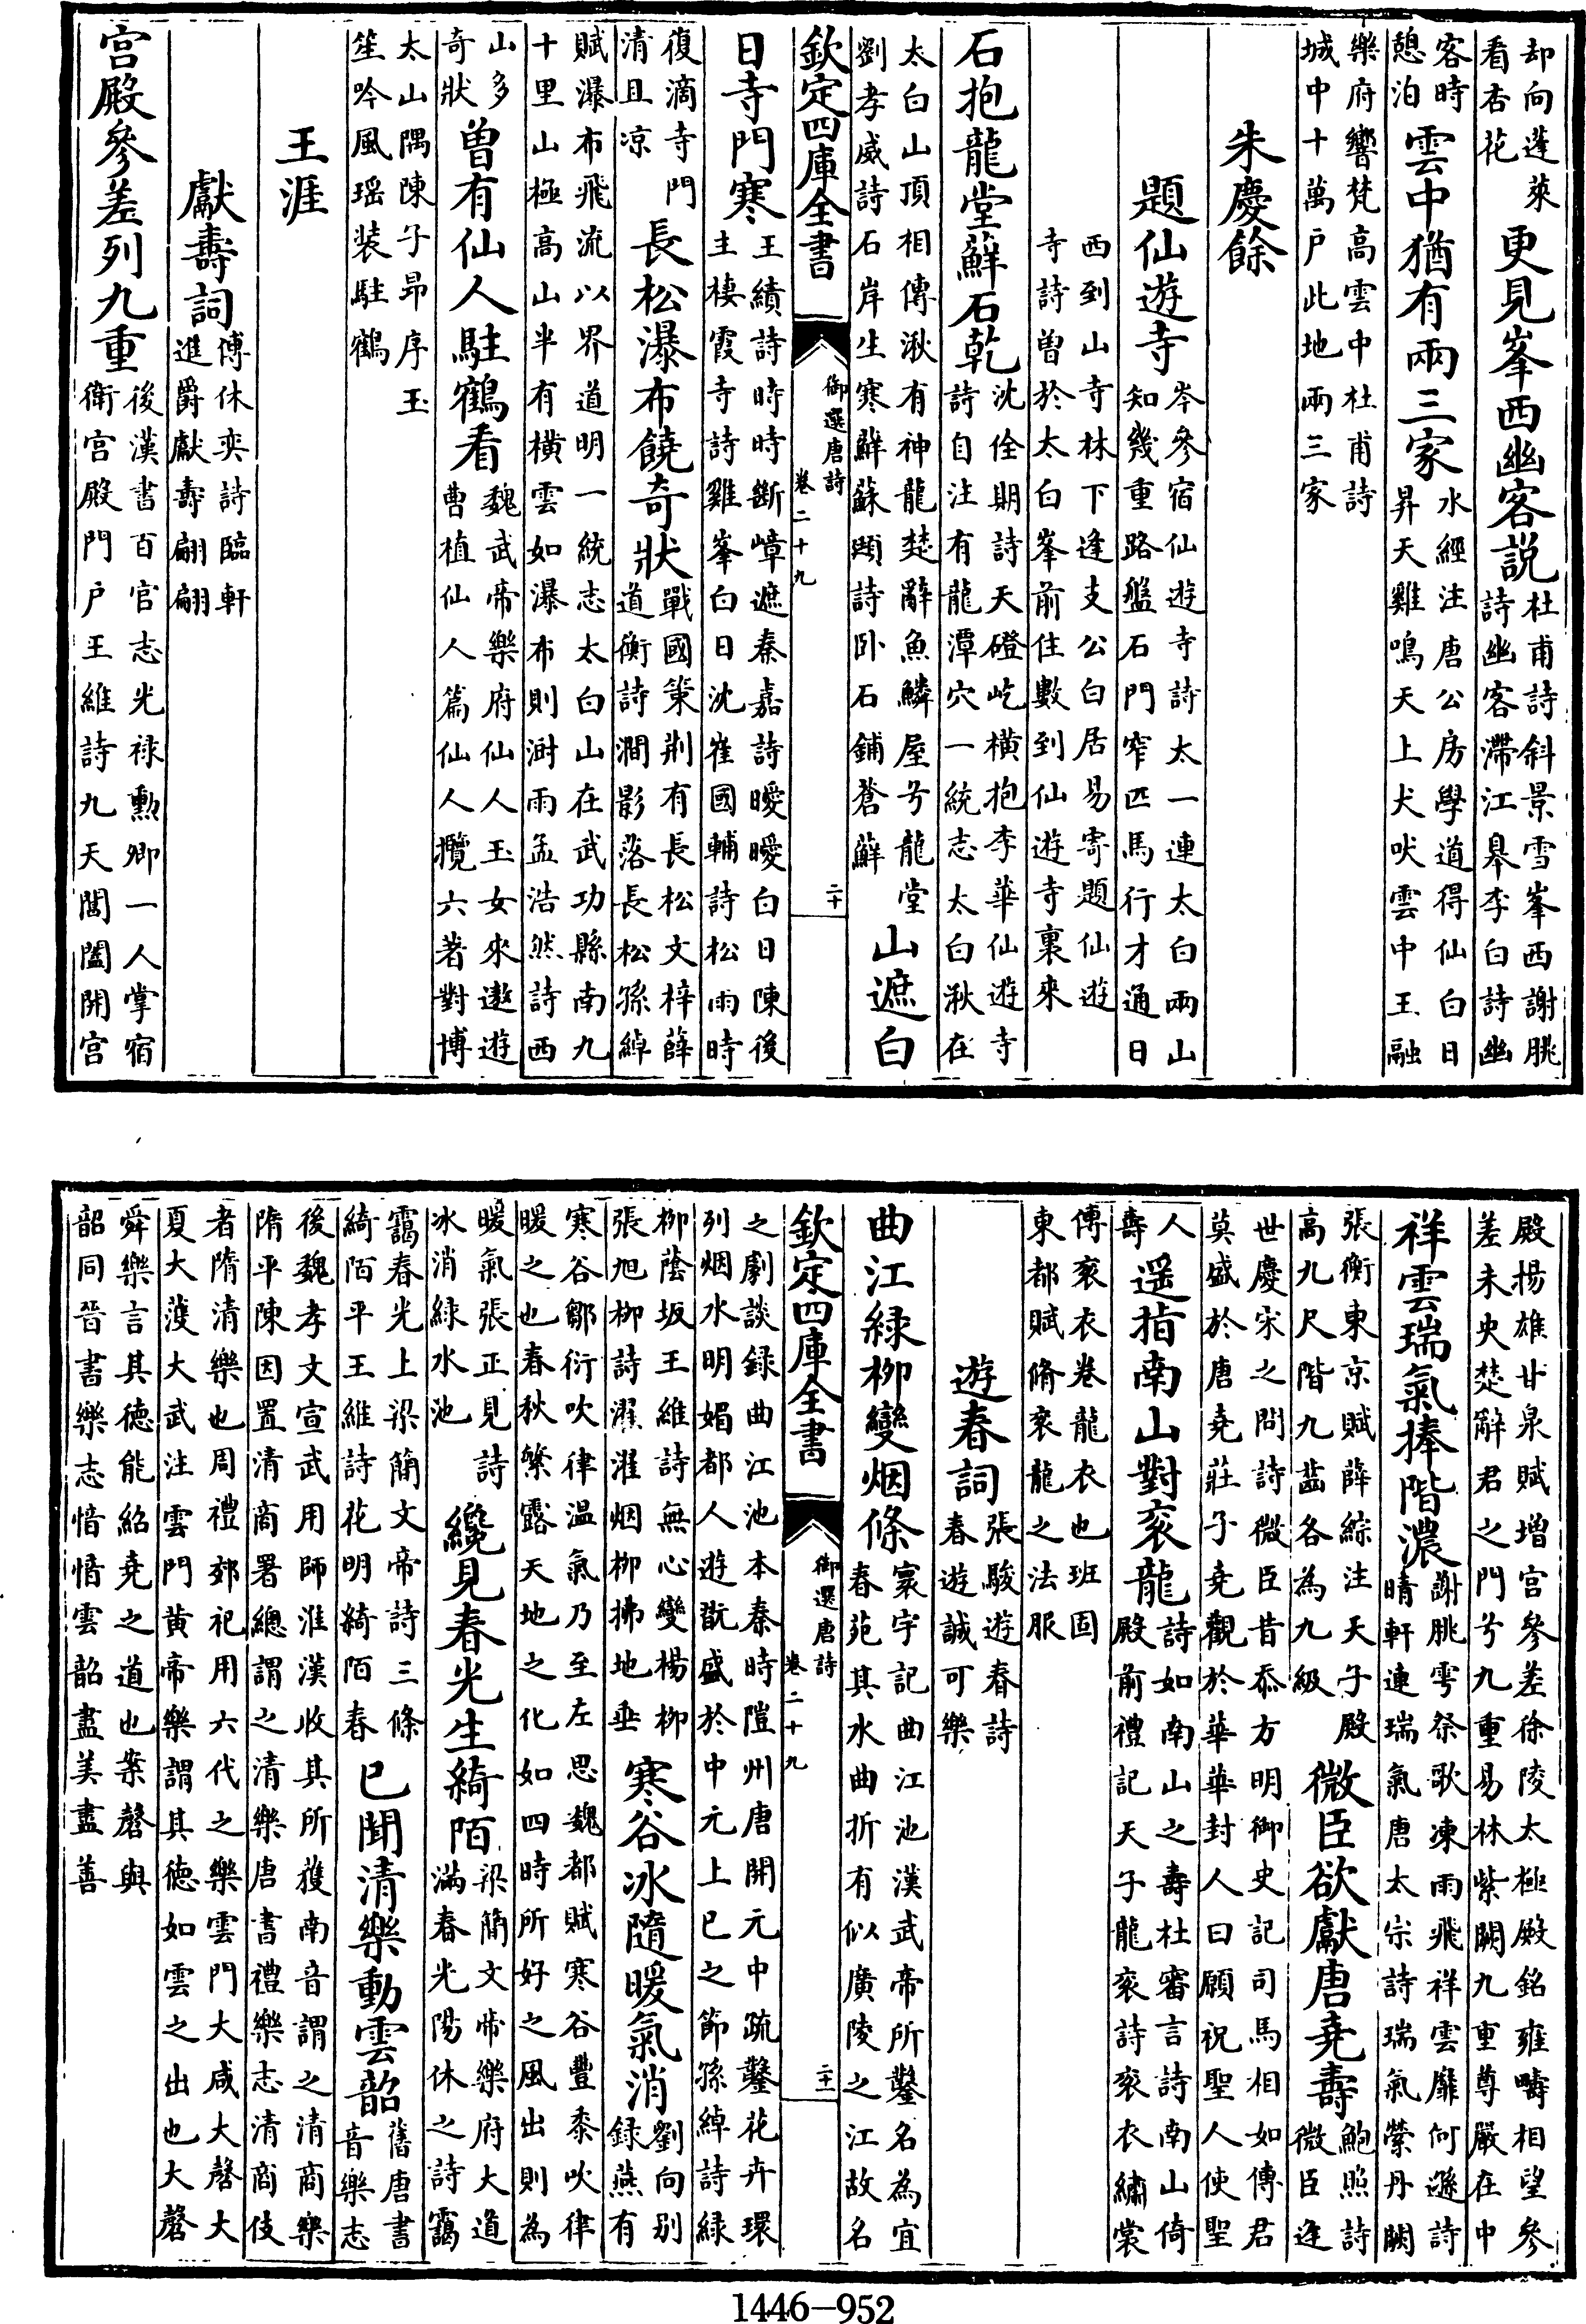 却向蓬萊看杏花更見峯西幽客説杜甫詩斜景雪峯西謝朓詩幽客滯江皋李白詩幽
客時憩泊雲中猶有兩三家水經注唐公房學道得仙白日昇天雞鳴天上犬吠雲中王融
樂府響梵高雲中杜甫詩城中十萬戸此地兩三家
朱慶餘
題仙遊寺岑參宿仙遊寺詩太一連太白兩山知幾重路盤石門窄匹馬行才通白
西到山寺林下逢支公白居易寄題仙遊寺詩曽於太白峯前住數到仙遊寺裏來
石抱龍堂蘚石乾沈佺期詩天磴屹横抱李華仙遊寺詩自注有龍潭穴一統志太白湫在
太白山頂相傳湫有神龍楚辭魚鱗屋兮龍堂劉孝威詩石岸生寒蘚蘇頲詩卧石鋪蒼蘚山遮白
欽定四庫全書 御選唐詩 卷二十九 二十
日寺門寒王績詩時時斷嶂遮秦嘉詩曖曖白日陳後主棲霞寺詩雞峯白日沈崔國輔詩松雨時
復滴寺門清且凉長松瀑布饒奇狀戰國策荆有長松文梓薛道衡詩澗影落長松孫綽
賦瀑布飛流以界道明一統志太白山在武功縣南九十里山極高山半有横雲如瀑布則澍雨孟浩然詩西
山多奇狀曽有仙人駐鶴看魏武帝樂府仙人玉女來遨遊曹植仙人篇仙人攬六著對博
太山隅陳子昻序玉笙吟風瑶装駐鶴
王涯
獻壽詞傅休奕詩臨軒進爵獻壽翩翩
宫殿參差列九重後漢書百官志光禄勲卿一人掌宿衛宫殿門戸王維詩九天閶闔開宫
殿揚雄甘泉賦增宫參差徐陵太極殿銘雍疇相望參差未央楚辭君之門兮九重易林紫闕九重尊嚴在中
祥雲瑞氣捧階濃謝朓雩祭歌凍雨飛祥雲靡何遜詩晴軒連瑞氣唐太宗詩瑞氣縈丹闕
張衡東京賦薛綜注天子殿高九尺階九齒各為九級微臣欲獻唐堯壽鮑照詩微臣逢
世慶宋之問詩微臣昔忝方明御史記司馬相如傳君莫盛於唐堯莊子堯觀於華華封人曰願祝聖人使聖
人壽遥指南山對衮龍詩如南山之壽杜審言詩南山倚殿前禮記天子龍衮詩衮衣繡裳
傳衮衣卷龍衣也班固東都賦脩衮龍之法服
遊春詞張駿遊春詩春遊誠可樂
曲江緑柳變烟條寰宇記曲江池漢武帝所鑿名為宜春苑其水曲折有似廣陵之江故名
欽定四庫全書 御選唐詩 卷二十九 二十一
之劇談録曲江池本秦時隑州唐開元中疏鑿花卉環列烟水明媚都人遊翫盛於中元上巳之節孫綽詩緑
柳蔭坂王維詩無心變楊柳張旭柳詩濯濯烟柳拂地垂寒谷冰隨暖氣消劉向别録燕有
寒谷鄒衍吹律温氣乃至左思魏都賦寒谷豐黍吹律暖之也春秋繁露天地之化如四時所好之風出則為
暖氣張正見詩冰消緑水池纔見春光生綺陌梁簡文帝樂府大道滿春光陽休之詩靄
靄春光上梁簡文帝詩三條綺陌平王維詩花明綺陌春已聞清樂動雲韶舊唐書音樂志
後魏孝文宣武用師淮漢收其所獲南音謂之清商樂隋平陳因置清商署總謂之清樂唐書禮樂志清商伎
者隋清樂也周禮郊祀用六代之樂雲門大咸大磬大夏大濩大武注雲門黄帝樂謂其德如雲之出也大磬
舜樂言其德能紹堯之道也案磬與韶同晉書樂志愔愔雲韶盡美盡善
1446—952